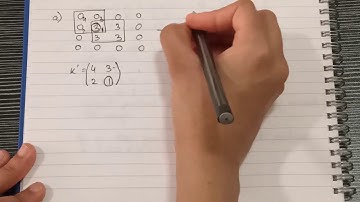 a) 0₁ 0₂ 0 0
0₁ 3₁ 3 0
0 3 3 0
0 0 0 0
K' = (4 3
2 1)